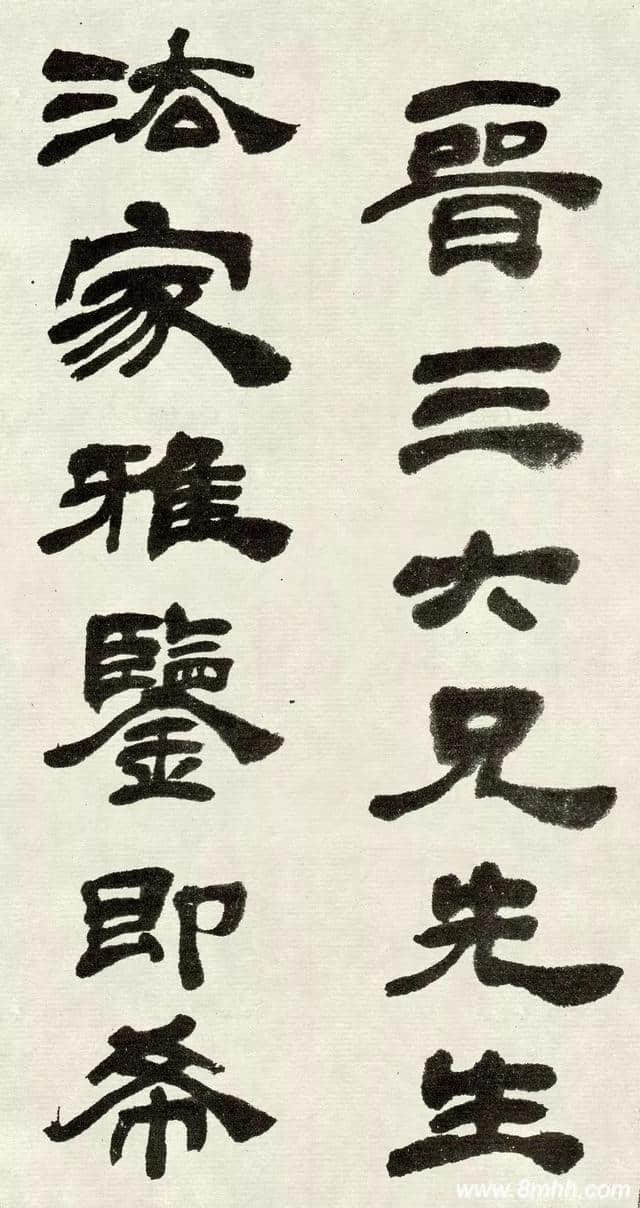 晉三六兄先生
法家雅鑒即希
www.8mhh.com